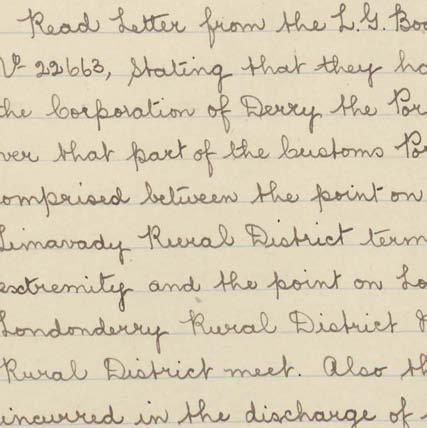 Read Letter from the L. G. Boa
No 22663, stating that they ha
the Corporation of Derry the Por
ver that part of the Customs Por
omprised between the point on
Limavady Rural District term
extremity and the point on Lo
Londonderry Rural District
Rural District meet. Also th
incurred in the discharge of